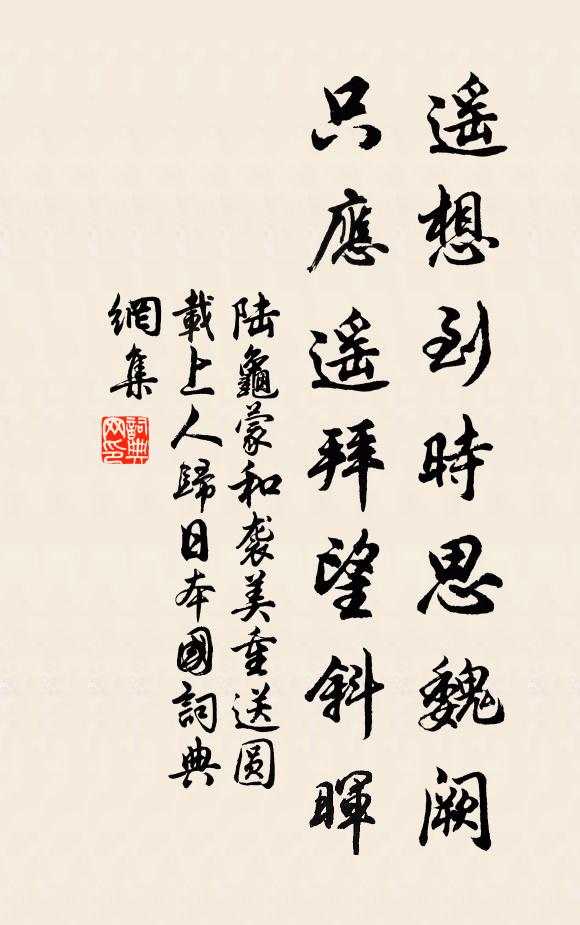 遥想到時思魏闕
只應遥拜望斜暉
陆龜蒙和袭美重送圆
載上人歸日本國詞典
網集
詞典
网印